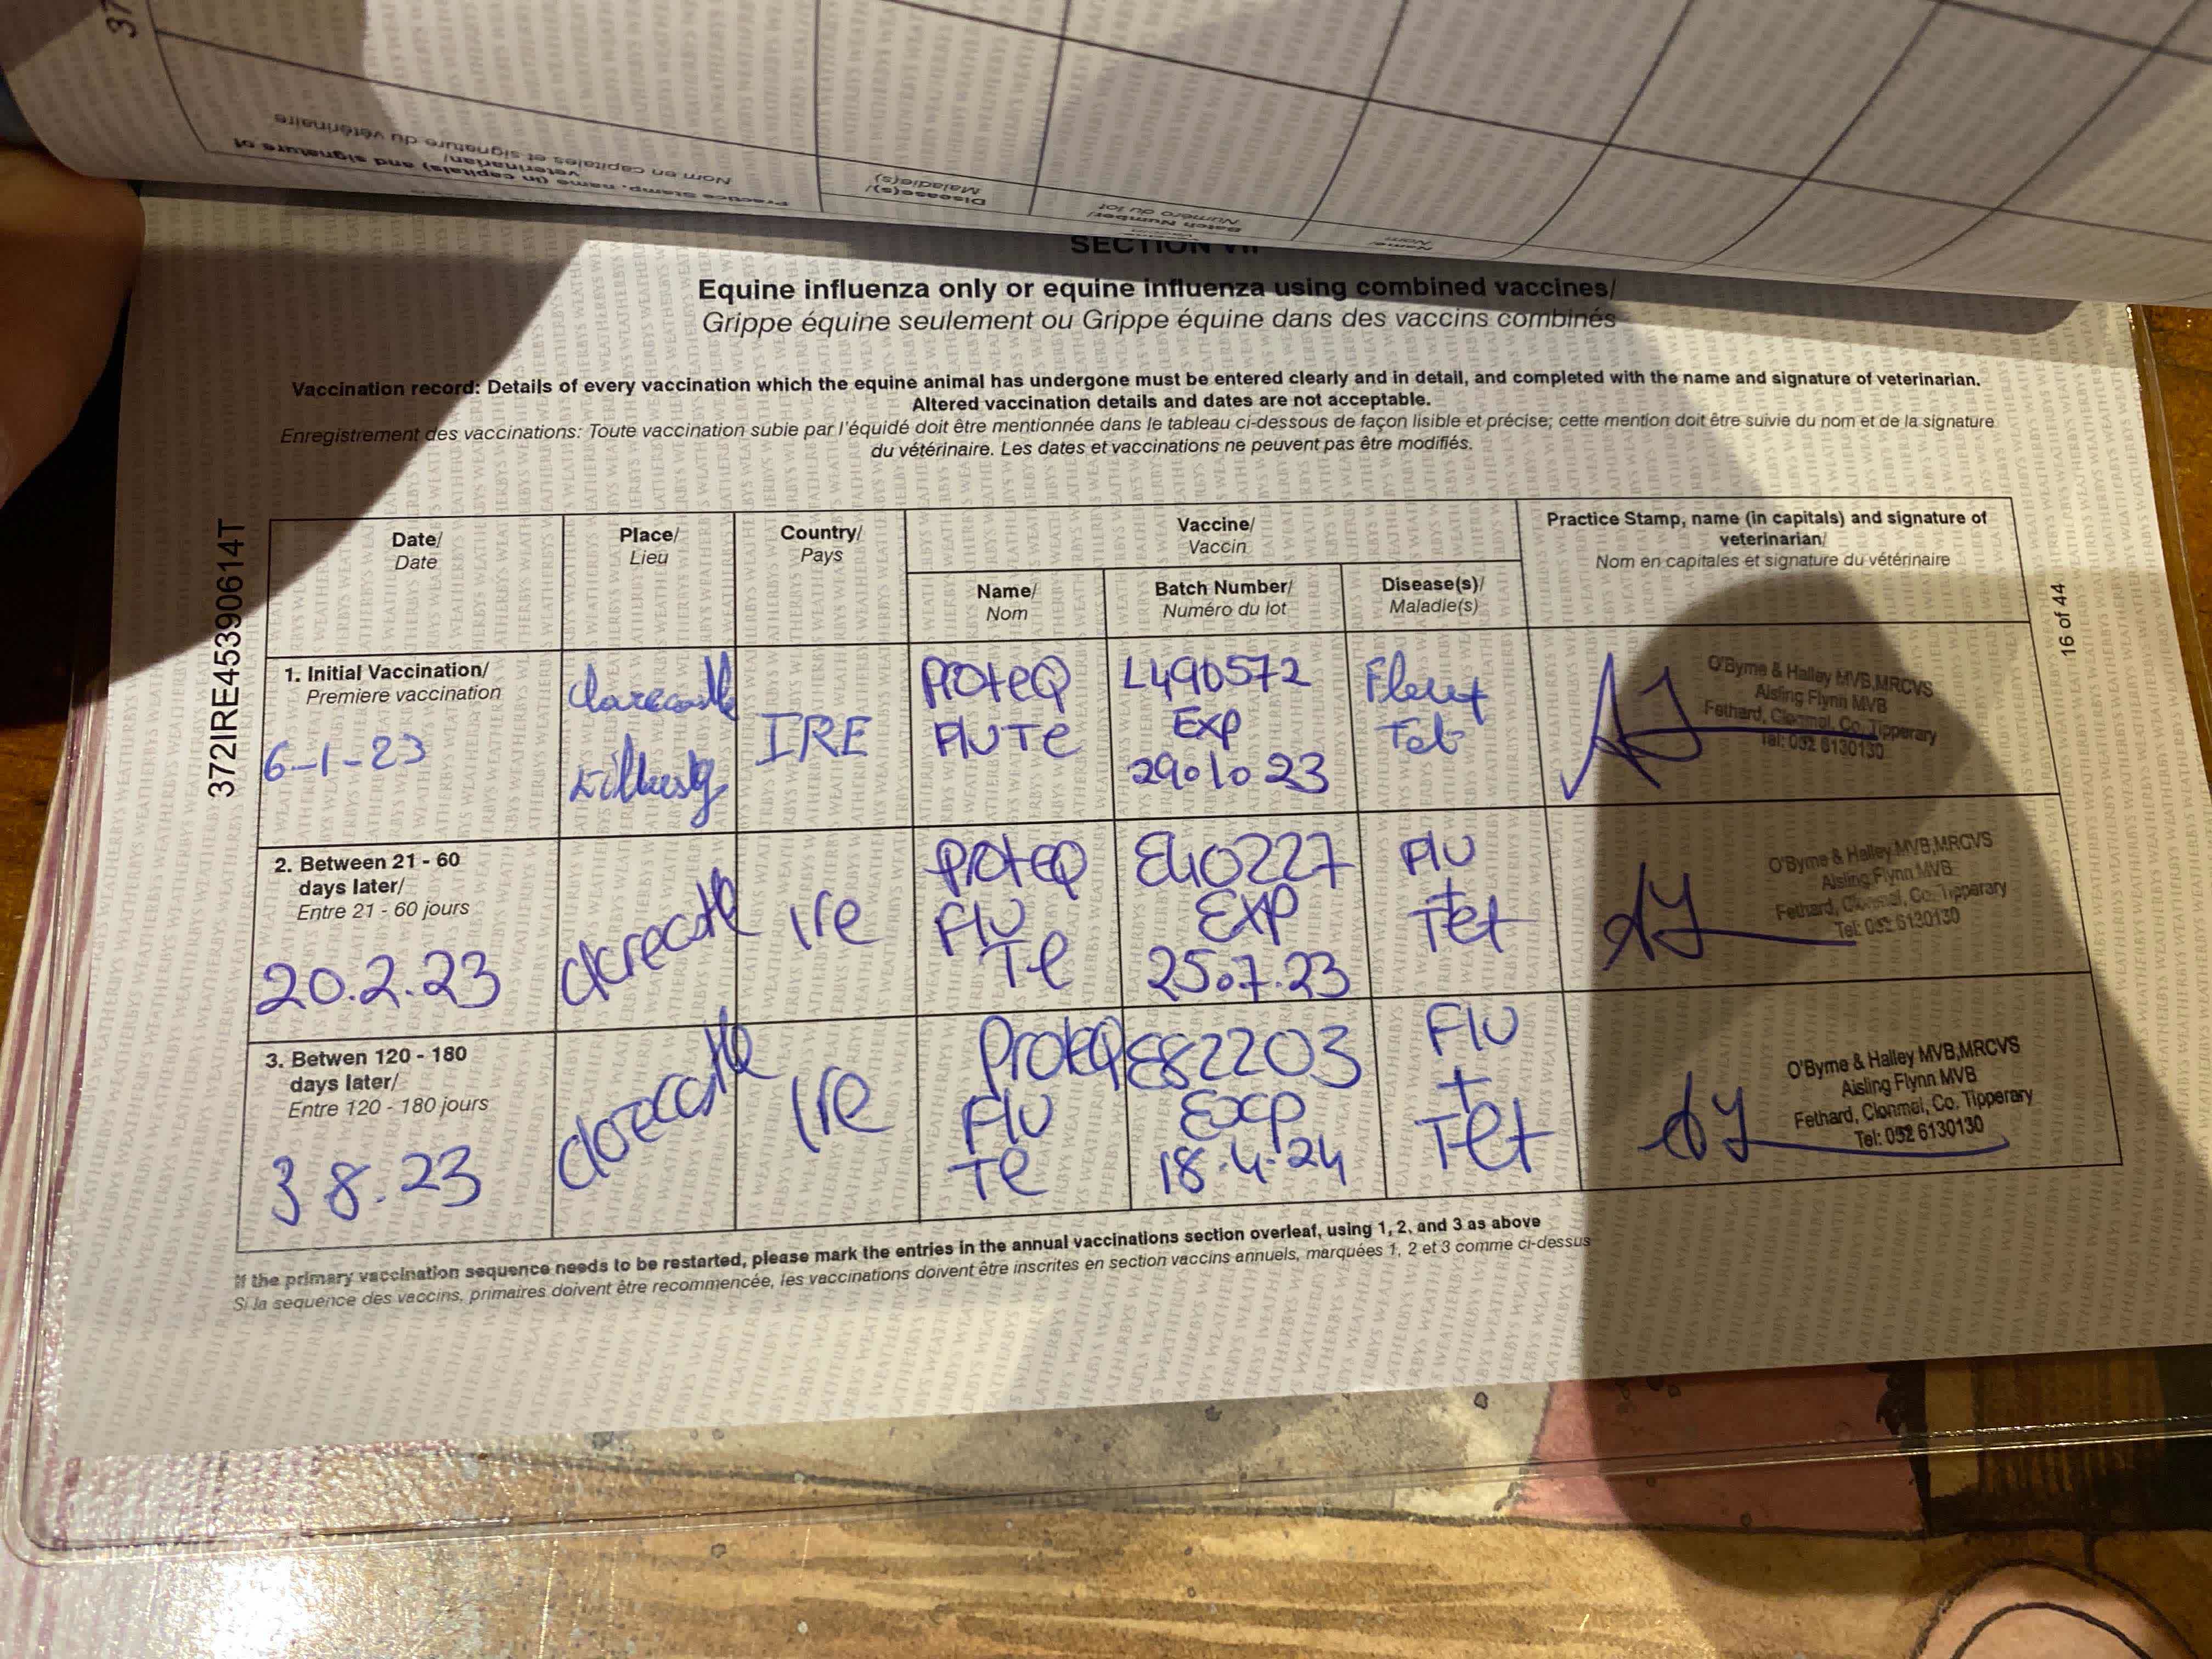 37
Practice Stamp, name (in capitals) and signature of
veterinarian/
Nom en capitales et signature du vétérinaire
Disease(s)/
Maladie(s)
Batch Number/
Numéro du lot
Name/
Nom
SECTION VII
Equine influenza only or equine influenza using combined vaccines/
Grippe équine seulement ou Grippe équine dans des vaccins combinés
Vaccination record: Details of every vaccination which the equine animal has undergone must be entered clearly and in detail, and completed with the name and signature of veterinarian.
Altered vaccination details and dates are not acceptable.
Enregistrement des vaccinations: Toute vaccination subie par l'équidé doit être mentionnée dans le tableau ci-dessous de façon lisible et précise; cette mention doit être suivie du nom et de la signature
du vétérinaire. Les dates et vaccinations ne peuvent pas être modifiés.
372IRE45390614T
16 of 44
Date/
Date
Place/
Lieu
Country/
Pays
Vaccine/
Vaccin
Name/
Nom
Batch Number/
Numéro du lot
Disease(s)/
Maladie(s)
Practice Stamp, name (in capitals) and signature of
veterinarian/
Nom en capitales et signature du vétérinaire
1. Initial Vaccination/
Premiere vaccination
6-1-23
Clarecastle
IRE
ProteQ
FLUTE
L490572
EXP
29.10.23
Tet
O'Byrne & Halley MVB,MRCVS
Aisling Flynn MVB
Fethard, Clonmel, Co. Tipperary
Tel: 052 6130130
2. Between 21 - 60
days later/
Entre 21 - 60 jours
20.2.23
clarecastle
Ire
ProteQ
Flu
Te
E40227
EXP
25.7.23
Flu
+
Tet
O'Byrne & Halley MVB,MRCVS
Aisling Flynn MVB
Fethard, Clonmel, Co. Tipperary
Tel: 052 6130130
3. Betwen 120 - 180
days later/
Entre 120 - 180 jours
3 8.23
clarecastle
Ire
ProteQ
Flu
Te
E82203
Exp
18.4.24
Flu
+
Tet
O'Byrne & Halley MVB,MRCVS
Aisling Flynn MVB
Fethard, Clonmel, Co. Tipperary
Tel: 052 6130130
If the primary vaccination sequence needs to be restarted, please mark the entries in the annual vaccinations section overleaf, using 1, 2, and 3 as above
Si la sequence des vaccins, primaires doivent être recommencée, les vaccinations doivent être inscrites en section vaccins annuels, marquées 1, 2 et 3 comme ci-dessus